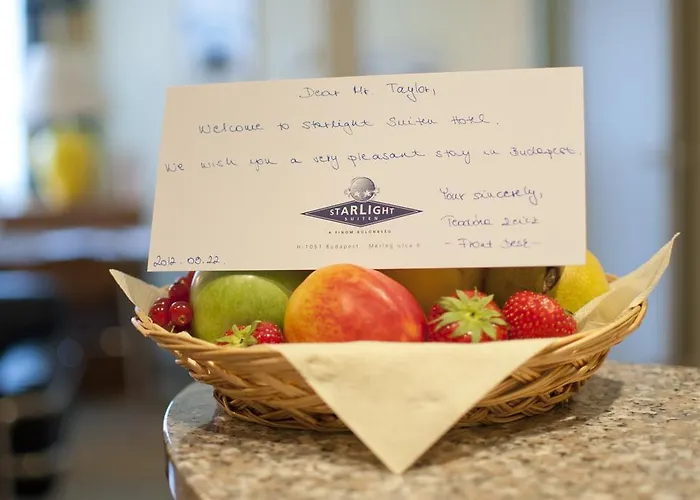 Dear Mr Taylor,
Welcome to Starlight Suiten Hotel.
We wish you a very pleasant stay in Budapest.
Your sincerely,
- Front desk -
STARLIGHT
SUITEN
H-1051 Budapest Mérleg utca 6
2012. 08. 22.